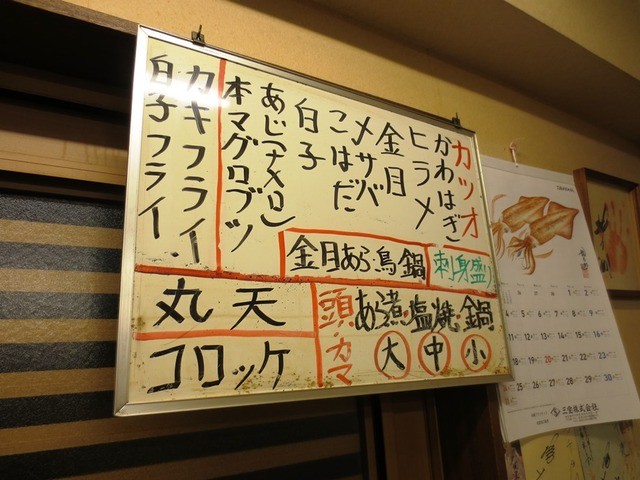 カツオ
かわはぎ
ヒラメ
金目
メサバ
こはだ
白子
あじ(ナメロ)
本マグロブツ
カキフライ
白子フライ
刺身盛り
金目あら・鳥鍋
頭・カマ
あら煮・塩焼・鍋
大 中 小
丸天
コロッケ
三宝株式会社